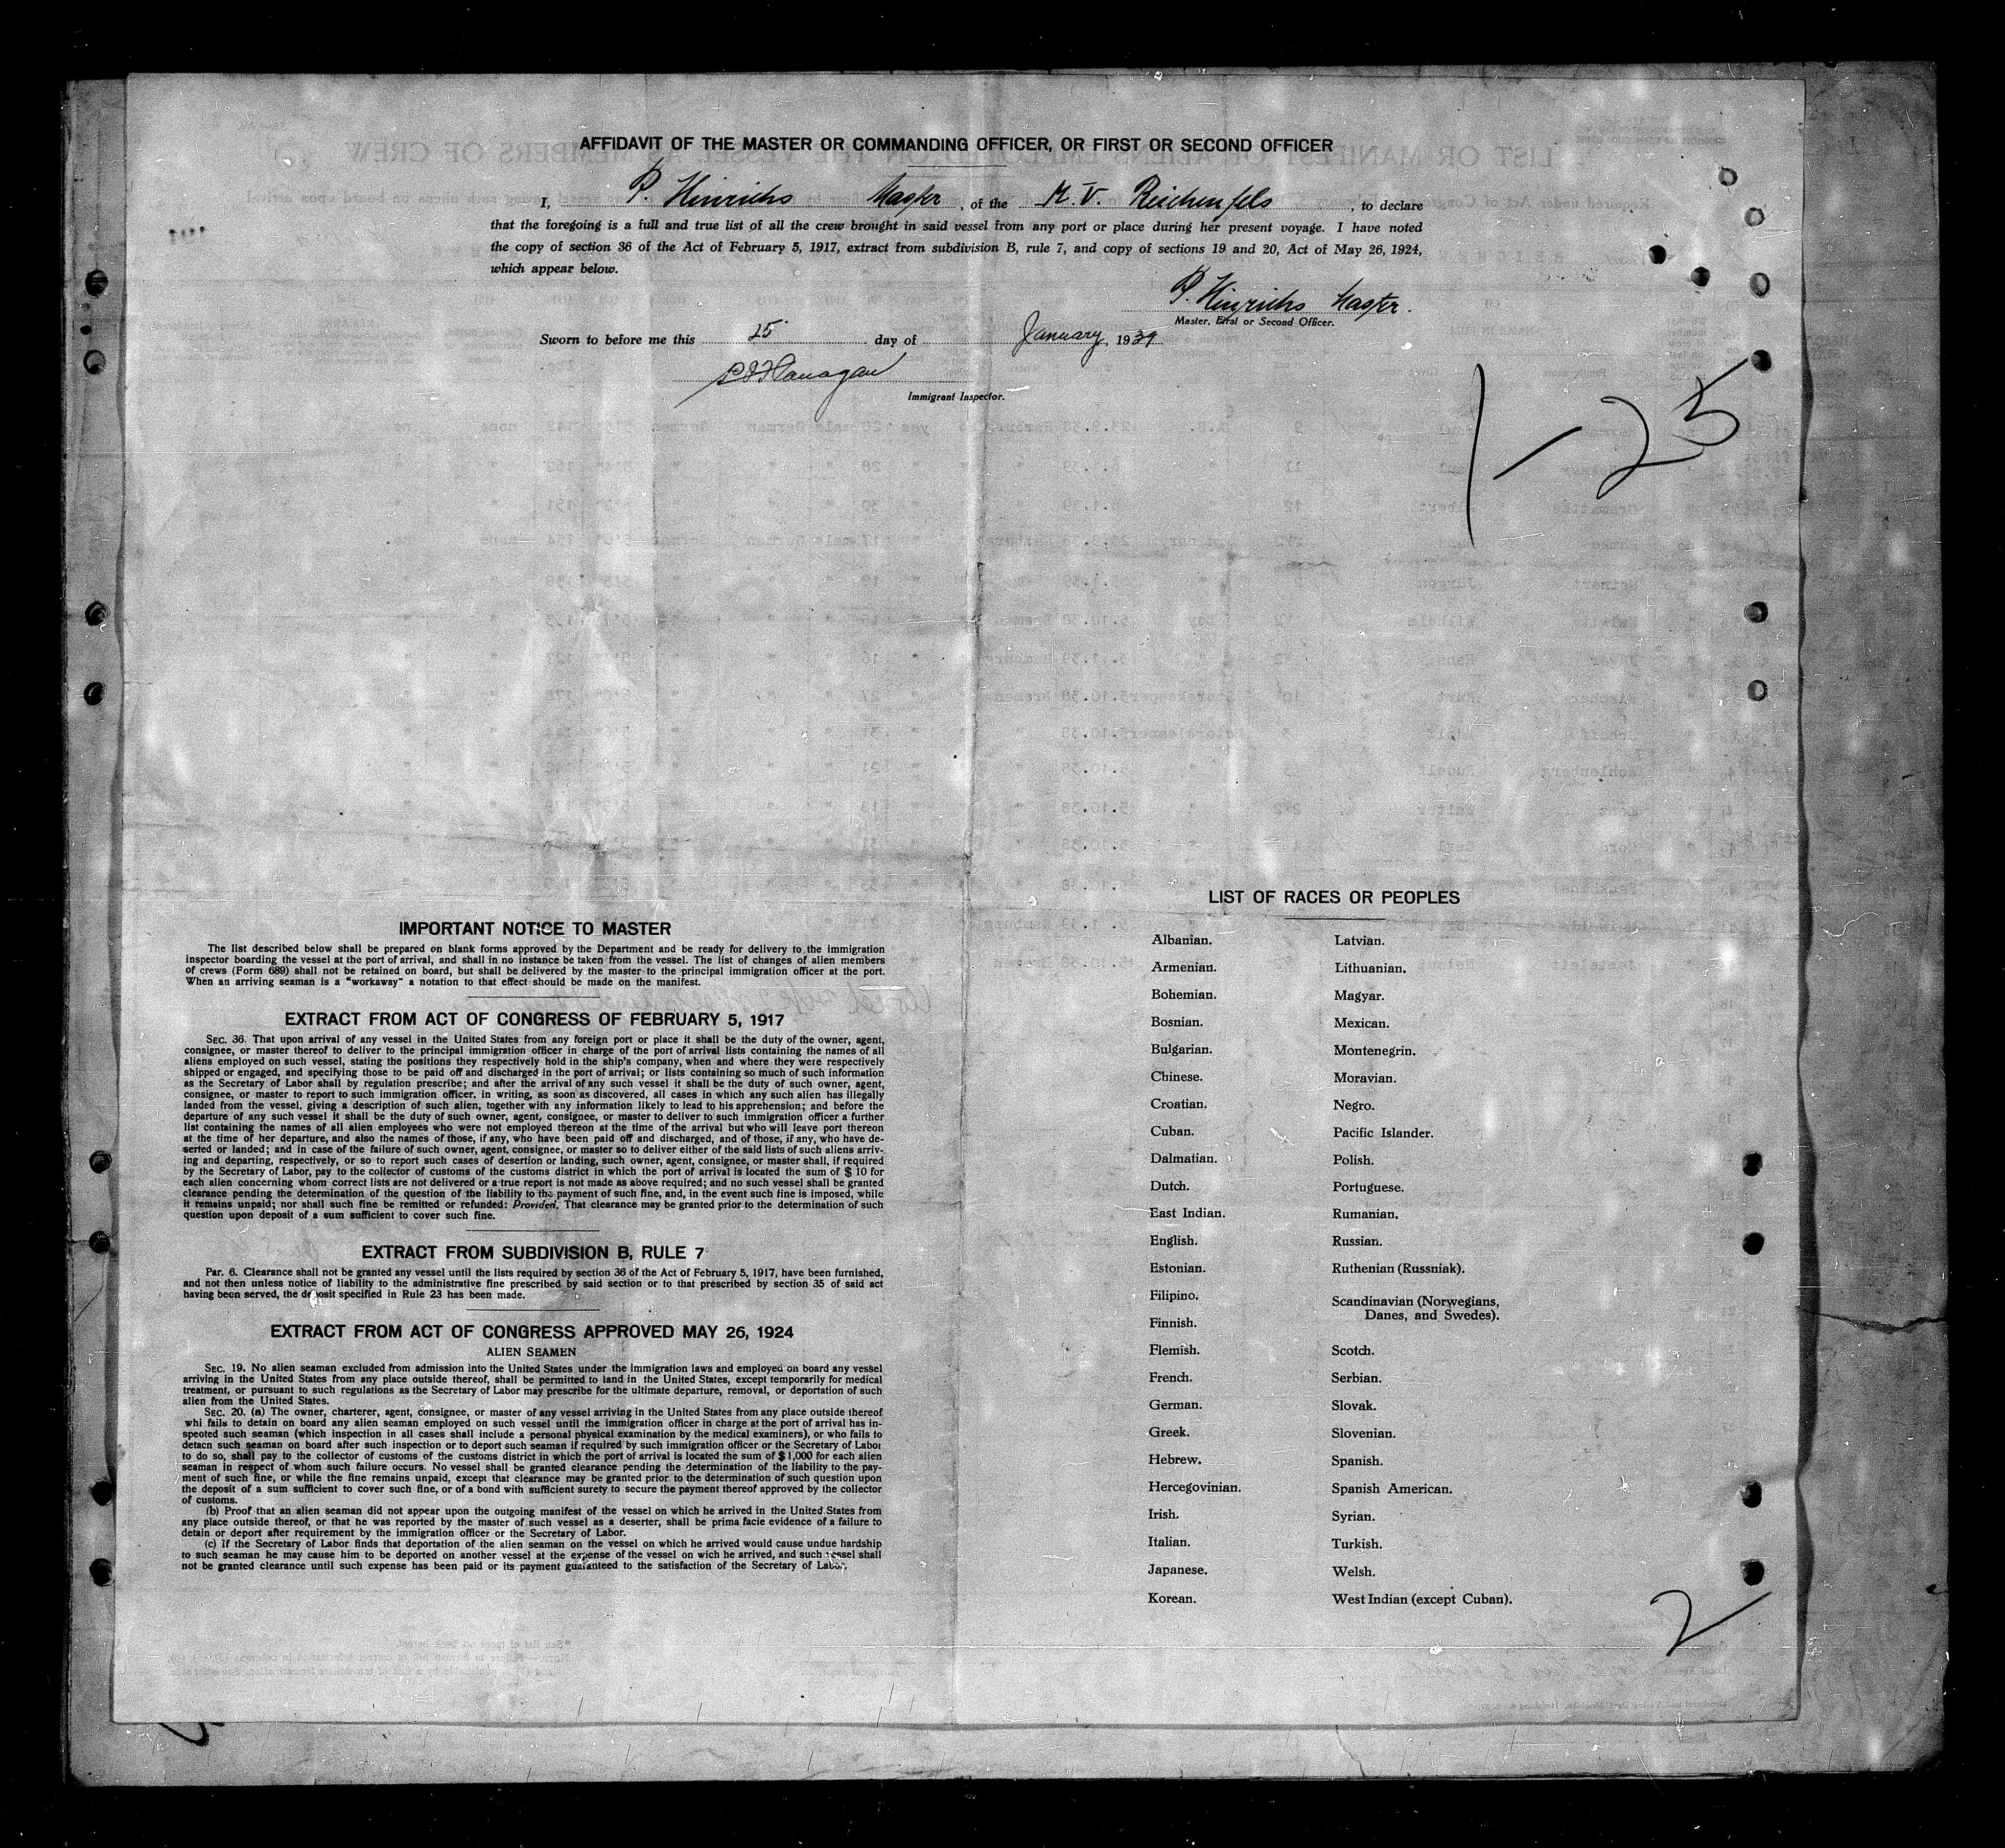 AFFIDAVIT OF THE MASTER OR COMMANDING OFFICER, OR FIRST OR SECOND OFFICER
I, P. Hinrichs Master, of the M.V. Reichenfels, to declare
that the foregoing is a full and true list of all the crew brought in said vessel from any port or place during her present voyage. I have noted
the copy of section 36 of the Act of February 5, 1917, extract from subdivision B, rule 7, and copy of sections 19 and 20, Act of May 26, 1924,
which appear below.
P. Hinrichs Master.
Master, First or Second Officer.
Sworn to before me this 25 day of January, 1939
Flanagan
Immigrant Inspector.
1-25
IMPORTANT NOTICE TO MASTER
The list described below shall be prepared on blank forms approved by the Department and be ready for delivery to the immigration
inspector boarding the vessel at the port of arrival, and shall in no instance be taken from the vessel. The list of changes of alien members
of crews (Form 689) shall not be retained on board, but shall be delivered by the master to the principal immigration officer at the port.
When an arriving seaman is a "workaway" a notation to that effect should be made on the manifest.
EXTRACT FROM ACT OF CONGRESS OF FEBRUARY 5, 1917
SEC. 36. That upon arrival of any vessel in the United States from any foreign port or place it shall be the duty of the owner, agent,
consignee, or master thereof to deliver to the principal immigration officer in charge of the port of arrival lists containing the names of all
aliens employed on such vessel, stating the positions they respectively hold in the ship's company, when and where they were respectively
shipped or engaged, and specifying those to be paid off and discharged in the port of arrival; or lists containing so much of such information
as the Secretary of Labor shall by regulation prescribe; and after the arrival of any such vessel it shall be the duty of such owner, agent,
consignee, or master to report to such immigration officer, in writing, as soon as discovered, all cases in which any such alien has illegally
landed from the vessel, giving a description of such alien, together with any information likely to lead to his apprehension; and before the
departure of any such vessel it shall be the duty of such owner, agent, consignee, or master to deliver to such immigration officer a further
list containing the names of all alien employees who were not employed thereon at the time of the arrival but who will leave port thereon
at the time of her departure, and also the names of those, if any, who have been paid off and discharged, and of those, if any, who have de-
serted or landed; and in case of the failure of such owner, agent, consignee, or master so to deliver either of the said lists of such aliens arriv-
ing and departing, respectively, or so to report such cases of desertion or landing, such owner, agent, consignee, or master shall, if required
by the Secretary of Labor, pay to the collector of customs of the customs district in which the port of arrival is located the sum of $ 10 for
each alien concerning whom correct lists are not delivered or a true report is not made as above required; and no such vessel shall be granted
clearance pending the determination of the question of the liability to the payment of such fine, and, in the event such fine is imposed, while
it remains unpaid; nor shall such fine be remitted or refunded: Provided, That clearance may be granted prior to the determination of such
question upon deposit of a sum sufficient to cover such fine.
EXTRACT FROM SUBDIVISION B, RULE 7
Par. 6. Clearance shall not be granted any vessel until the lists required by section 36 of the Act of February 5, 1917, have been furnished,
and not then unless notice of liability to the administrative fine prescribed by said section or to that prescribed by section 35 of said act
having been served, the deposit specified in Rule 23 has been made.
EXTRACT FROM ACT OF CONGRESS APPROVED MAY 26, 1924
ALIEN SEAMEN
SEC. 19. No alien seaman excluded from admission into the United States under the immigration laws and employed on board any vessel
arriving in the United States from any place outside thereof, shall be permitted to land in the United States, except temporarily for medical
treatment, or pursuant to such regulations as the Secretary of Labor may prescribe for the ultimate departure, removal, or deportation of such
alien from the United States.
SEC. 20. (a) The owner, charterer, agent, consignee, or master of any vessel arriving in the United States from any place outside thereof
whi fails to detain on board any alien seaman employed on such vessel until the immigration officer in charge at the port of arrival has in-
speoted such seaman (which inspection in all cases shall include a personal physical examination by the medical examiners), or who fails to
detacn such seaman on board after such inspection or to deport such seaman if required by such immigration officer or the Secretary of Labor
to do so, shall pay to the collector of customs of the customs district in which the port of arrival is located the sum of $ 1,000 for each alien
seaman in respect of whom such failure occurs. No vessel shall be granted clearance pending the determination of the liability to the pay-
ment of such fine, or while the fine remains unpaid, except that clearance may be granted prior to the determination of such question upon
the deposit of a sum sufficient to cover such fine, or of a bond with sufficient surety to secure the payment thereof approved by the collector
of customs.
(b) Proof that an alien seaman did not appear upon the outgoing manifest of the vessel on which he arrived in the United States from
any place outside thereof, or that he was reported by the master of such vessel as a deserter, shall be prima facie evidence of a failure to
detain or deport after requirement by the immigration officer or the Secretary of Labor.
(c) If the Secretary of Labor finds that deportation of the alien seaman on the vessel on which he arrived would cause undue hardship
to such seaman he may cause him to be deported on another vessel at the expense of the vessel on wich he arrived, and such vessel shall
not be granted clearance until such expense has been paid or its payment guaranteed to the satisfaction of the Secretary of Labor.
LIST OF RACES OR PEOPLES
Albanian.
Armenian.
Bohemian.
Bosnian.
Bulgarian.
Chinese.
Croatian.
Cuban.
Dalmatian.
Dutch.
East Indian.
English.
Estonian.
Filipino.
Finnish.
Flemish.
French.
German.
Greek.
Hebrew.
Hercegovinian.
Irish.
Italian.
Japanese.
Korean.
Latvian.
Lithuanian.
Magyar.
Mexican.
Montenegrin.
Moravian.
Negro.
Pacific Islander.
Polish.
Portuguese.
Rumanian.
Russian.
Ruthenian (Russniak).
Scandinavian (Norwegians,
Danes, and Swedes).
Scotch.
Serbian.
Slovak.
Slovenian.
Spanish.
Spanish American.
Syrian.
Turkish.
Welsh.
West Indian (except Cuban).
2